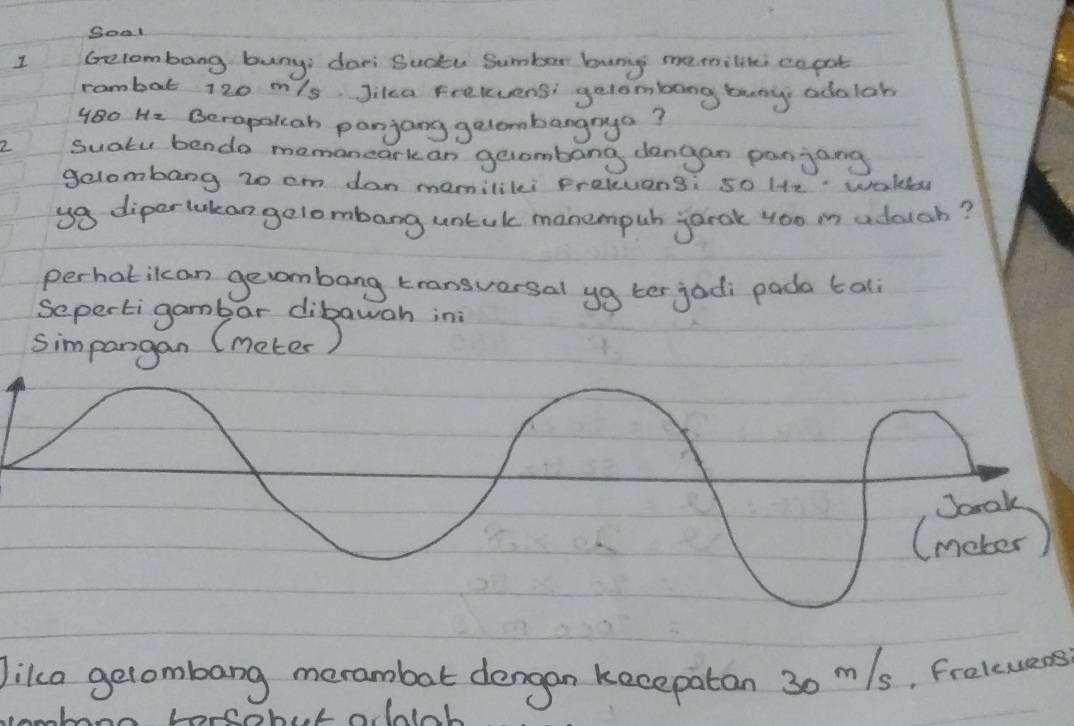 Soal
1 Gelombang bunyi dari suatu sumber bunyi memiliki cepat
rambat 120 m/s. Jika Frekuensi gelombang bunyi adalah
480 Hz Berapakah panjang gelombangnya?
2 Suatu benda memancarkan gelombang dengan panjang
gelombang 20 cm dan memiliki Frekuensi 50 Hz. waktu
yg diperlukan gelombang untuk menempuh jarak 400 m adalah?
perhatikan gelombang transversal yg terjadi pada tali
Seperti gambar dibawah ini
Simpangan (meter)
Jarak
(meter)
Jika gelombang merambat dengan kecepatan 30 m/s. Frekuensi
tersebut adalah